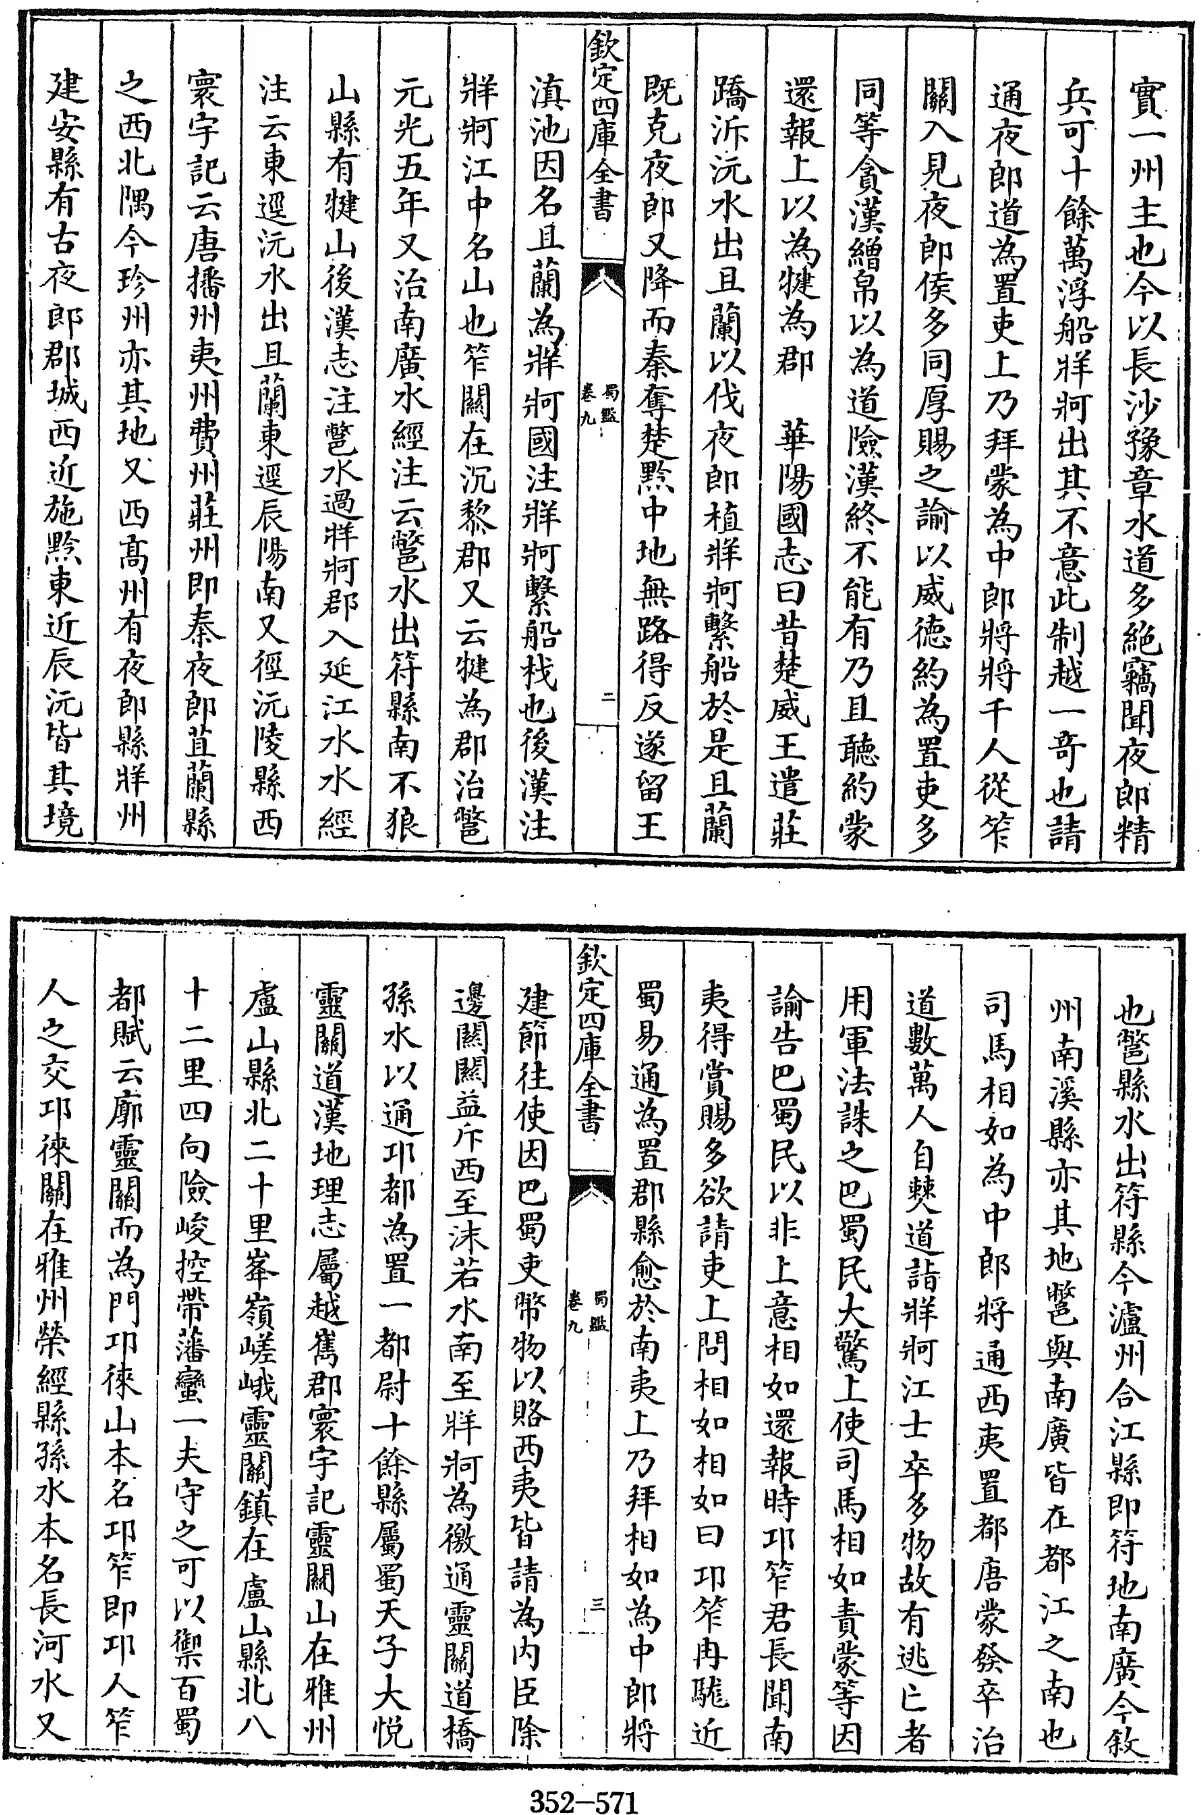 實一州主也今以長沙豫章水道多絶竊聞夜郎精
兵可十餘萬浮船牂牁出其不意此制越一竒也請
通夜郎道為置吏上乃拜蒙為中郎將將千人從笮
關入見夜郎侯多同厚賜之諭以威徳約為置吏多
同等貪漢繒帛以為道險漢終不能有乃且聽約蒙
還報上以為犍為郡　華陽國志曰昔楚威王遣莊
蹻泝沅水出且蘭以伐夜郎植牂牁繫船於是且蘭
既克夜郎又降而秦奪楚黔中地無路得反遂留王
欽定四庫全書
蜀鑑
卷九
二
滇池因名且蘭為牂牁國注牂牁繫船杙也後漢注
牂牁江中名山也笮關在沉黎郡又云犍為郡治鄨
元光五年又治南廣水經注云鄨水出符縣南不狼
山縣有犍山後漢志注鄨水過牂牁郡入延江水水經
注云東逕沅水出且蘭東逕辰陽南又徑沅陵縣西
寰宇記云唐播州夷州費州莊州即秦夜郎苴蘭縣
之西北隅今珍州亦其地又西髙州有夜郎縣牂州
建安縣有古夜郎郡城西近施黔東近辰沅皆其境
也鄨縣水出符縣今瀘州合江縣即符地南廣今敘
州南溪縣亦其地鄨與南廣皆在都江之南也
司馬相如為中郎將通西夷置都唐蒙發卒治
道數萬人自僰道詣牂牁江士卒多物故有逃亡者
用軍法誅之巴蜀民大驚上使司馬相如責蒙等因
諭告巴蜀民以非上意相如還報時邛笮君長聞南
夷得賞賜多欲請吏上問相如相如曰邛笮冉駹近
蜀易通為置郡縣愈於南夷上乃拜相如為中郎將
欽定四庫全書
蜀鑑
卷九
三
建節往使因巴蜀吏幣物以賂西夷皆請為内臣除
邊關關益斥西至沫若水南至牂牁為徼通靈關道橋
孫水以通邛都為置一都尉十餘縣屬蜀天子大悦
靈關道漢地理志屬越嶲郡寰宇記靈關山在雅州
盧山縣北二十里峯嶺嵯峨靈關鎮在盧山縣北八
十二里四向險峻控帶蕃蠻一夫守之可以禦百蜀
都賦云廓靈關而為門邛徠山本名邛笮即邛人笮
人之交邛徠關在雅州榮經縣孫水本名長河水又
352-571